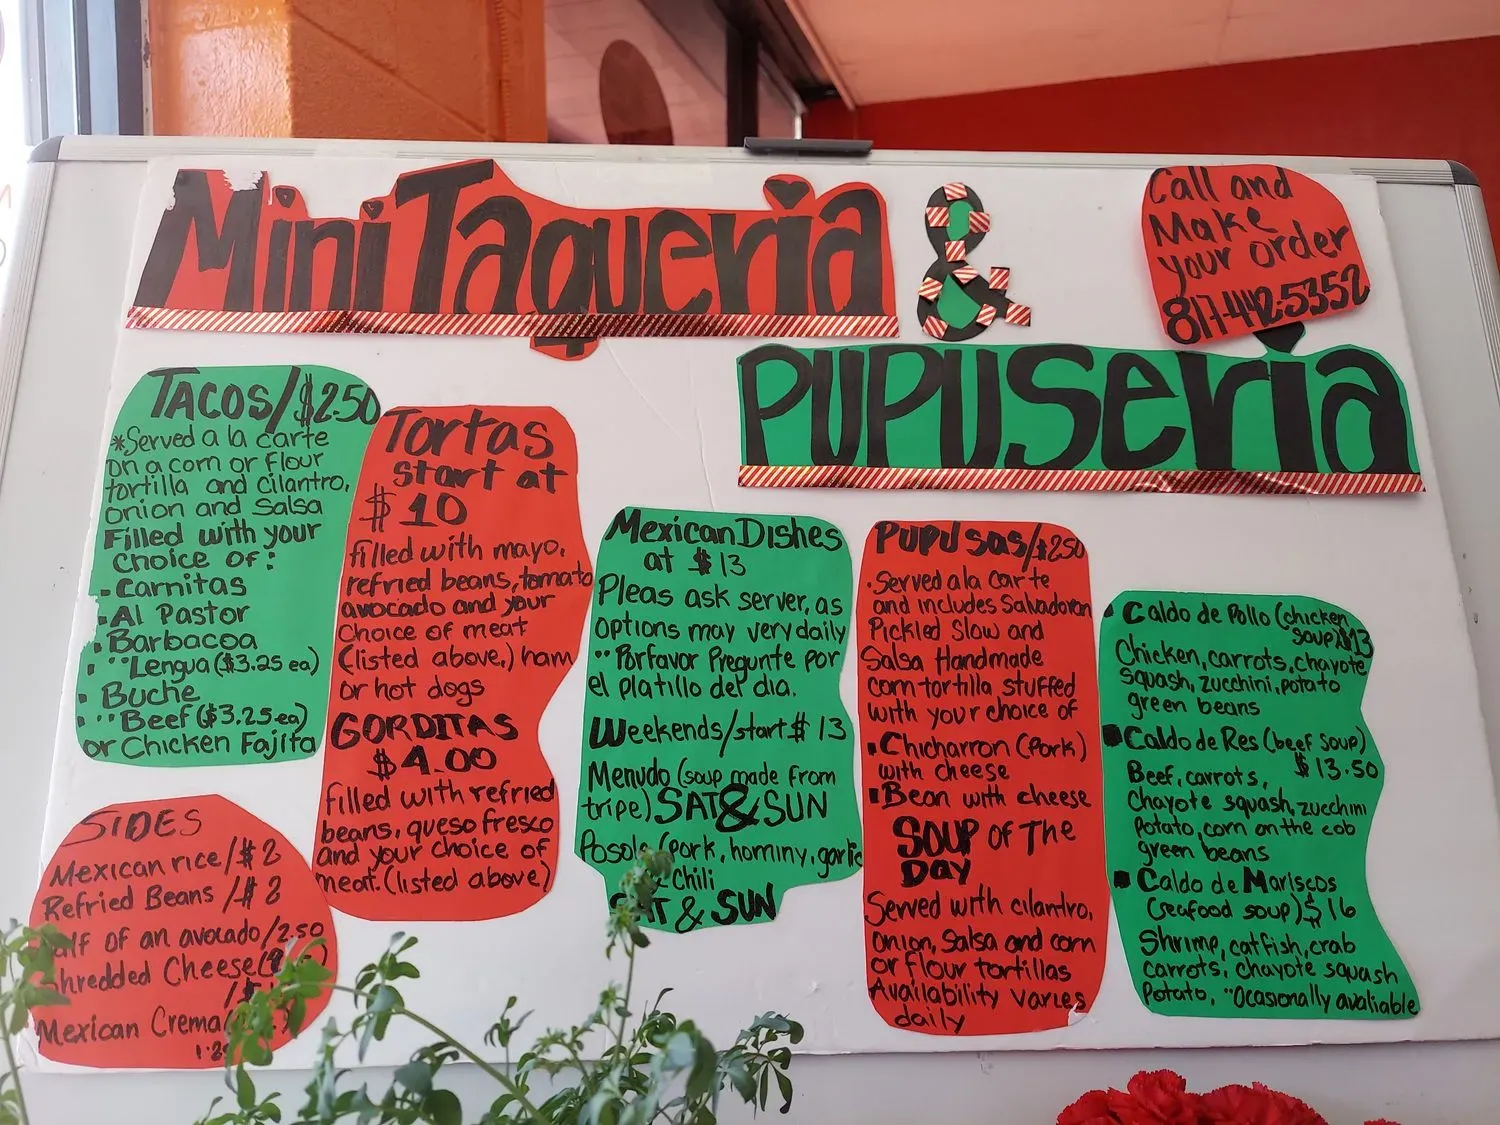 Mini Taqueria
&
Pupuseria
Call and
Make
your order
817-442-5352
TACOS/$2.50
*Served a la carte
on a corn or flour
tortilla and cilantro,
onion and salsa
Filled with your
choice of:
• Carnitas
• Al Pastor
• Barbacoa
• "Lengua ($3.25 ea)
• Buche
• "Beef ($3.25 ea)
or Chicken Fajita
SIDES
Mexican rice/$2
Refried Beans/$2
of an avocado/2.50
Shredded Cheese
Mexican Crema
Tortas
start at
$10
filled with mayo,
refried beans, tomato
avocado and your
Choice of meat
(listed above,) ham
or hot dogs
GORDITAS
$4.00
filled with refried
beans, queso fresco
and your choice of
meat. (listed above)
Mexican Dishes
at $13
Pleas ask server, as
options may very daily
"Porfavor Pregunte por
el platillo del dia.
Weekends/start $13
Menudo (soup made from
tripe) SAT & SUN
Posole (pork, hominy, garlic
Chili
SAT & SUN
PUPUSAS/$2.50
• Served a la carte
and includes Salvadoran
Pickled Slow and
Salsa Handmade
corn tortilla stuffed
with your choice of
• Chicharron (pork)
with cheese
• Bean with cheese
SOUP OF THE
DAY
Served with cilantro,
onion, salsa and corn
or flour tortillas
Availability varies
daily
• Caldo de Pollo (chicken
soup) $13
Chicken, carrots, chayote
squash, zucchini, potato
green beans
• Caldo de Res (beef soup)
$13.50
Beef, carrots,
Chayote squash, zucchini
Potato, corn on the cob
green beans
• Caldo de Mariscos
(seafood soup) $16
Shrimp, catfish, crab
carrots, chayote squash
Potato, "Ocasionally avaliable